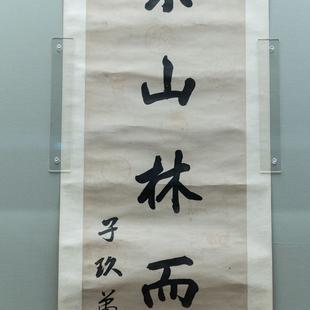 山林而
子玖